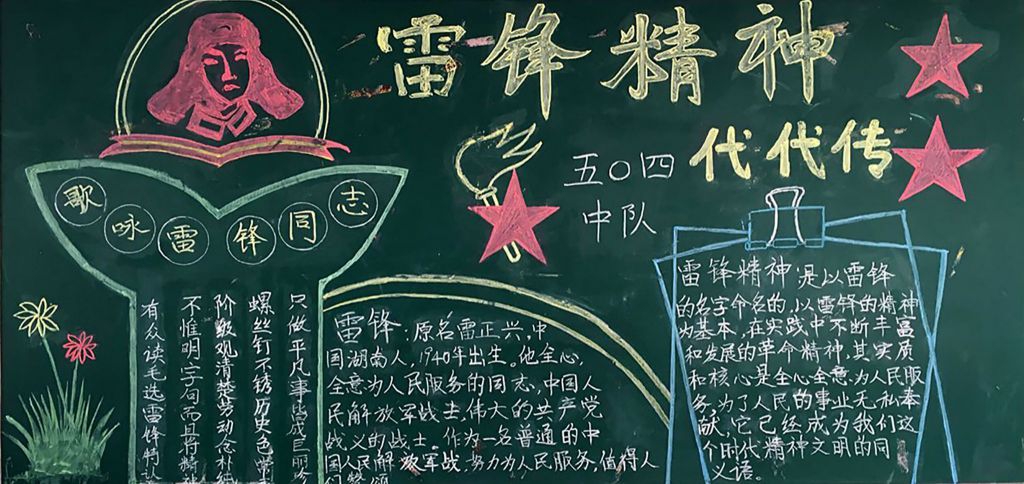 雷锋精神
代代传
五〇四
中队
歌咏雷锋同志
有众读毛选雷锋特
不惟明字句而且将精神
阶级观清楚劳动念朴纯
螺丝钉不锈历史色常
只做平凡事皆成巨丽
雷锋,原名雷正兴,中
国湖南人,1940年出生。他全心
全意为人民服务的同志,中国人
民解放军战士,伟大的共产党
战义的战士。作为一名普通的中
国人民解放军战,努力为人民服务,值得人
雷锋精神是以雷锋
的名字命名的,以雷锋的精神
为基本,在实践中不断丰富
和发展的革命精神,其实质
和核心是全心全意为人民服
务,为了人民的事业无私奉
献。它已经成为我们这
个时代精神文明的同
义语。